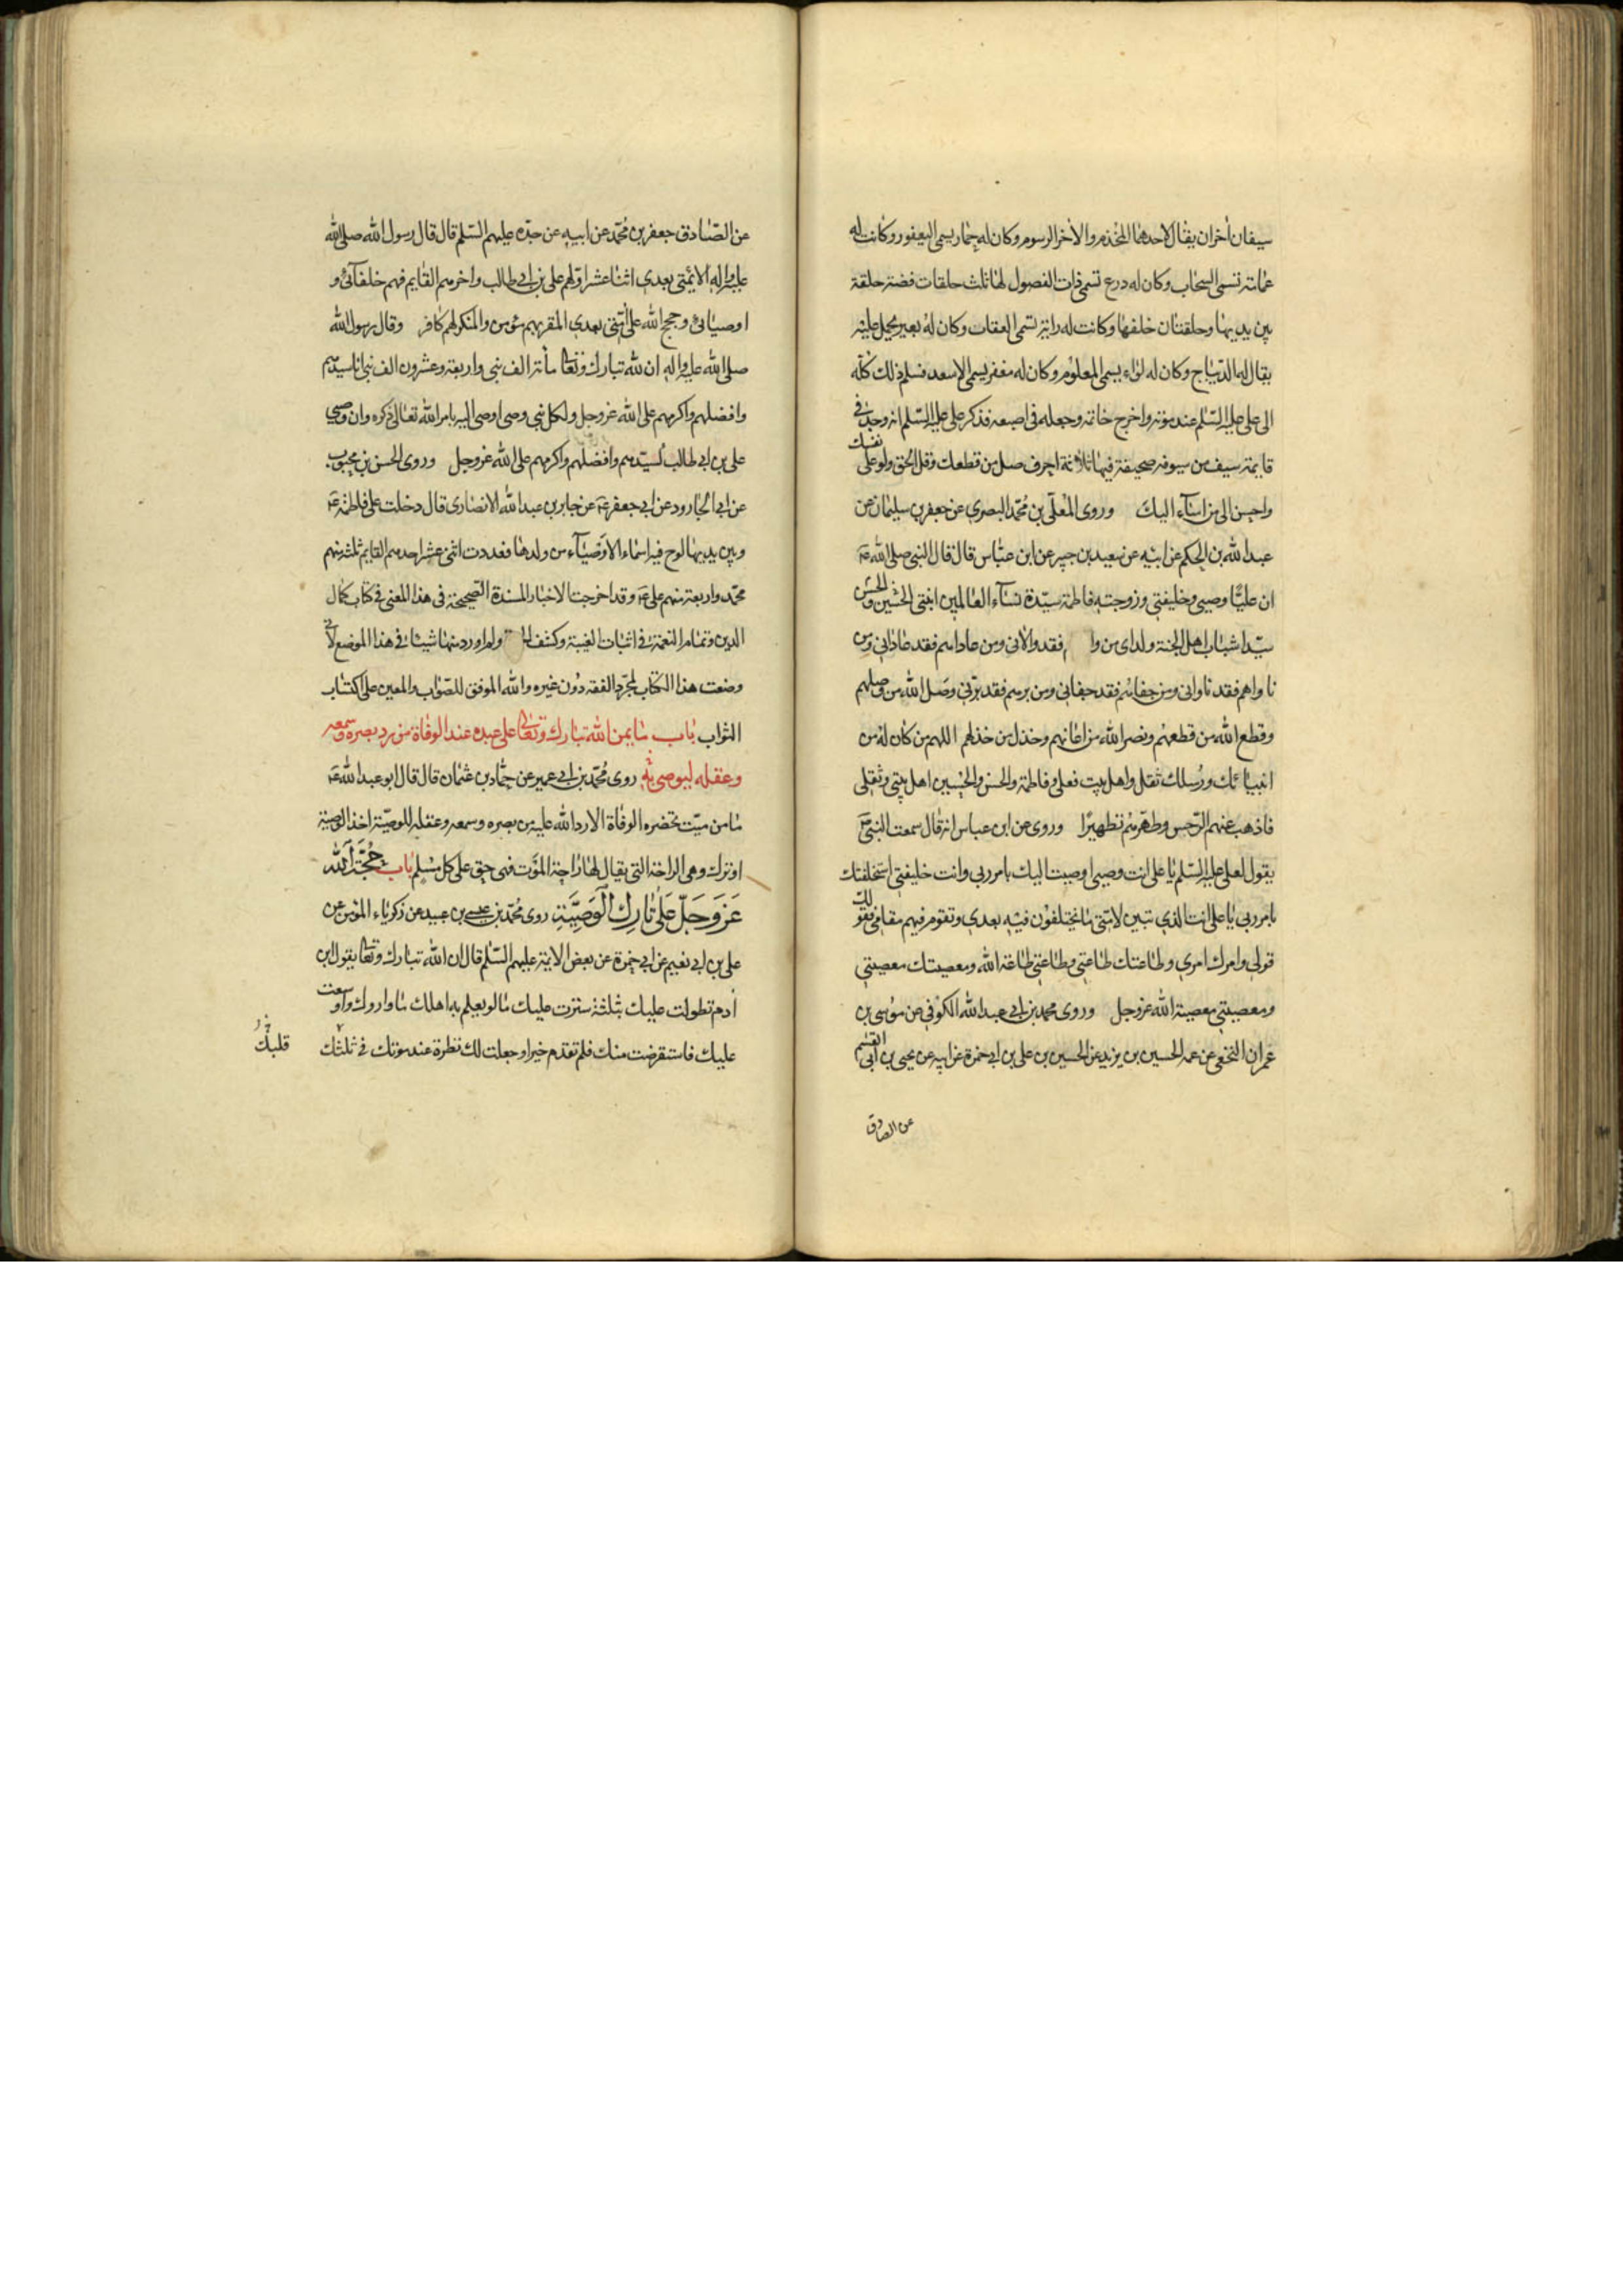 سيفان اخران يقال لاحدهما المخذم والاخر الرسوم وكان له حمار يسمى اليعفور وكانت له
عمامة تسمى السحاب وكان له درع تسمى ذات الفصول لها ثلث حلقات فضة حلقة
بين يديها وحلقتان خلفها وكانت له راية تسمى العقاب وكان له بعير يحمل عليه
يقال له الديباج وكان له لواء يسمى المعلوم وكان له مغفر يسمى الاسعد فسلم ذلك كله
الى على عليه السلم عند موته واخرج خاتمه وجعله فى اصبعه فذكر على عليه السلم انه وجد فى
قايمة سيف من سيوفه صحيفة فيها ثلاثة احرف صل من قطعك وقل الحق ولو على نفسك
واحسن الى من اساء اليك وروى المعلى بن محمد البصرى عن جعفر بن سليمان عن
عبد الله بن الحكم عن ابيه عن سعيد بن جبير عن ابن عباس قال قال النبى صلى الله ع
ان عليا وصيى وخليفتى وزوجته فاطمة سيدة نساء العالمين ابنتى والحسن والحسين
سيدا شباب اهل الجنة ولداى من وا م فقد والانى ومن عاداهم فقد عادانى ومن
ناواهم فقد ناوانى ومن جفاهم فقد جفانى ومن برهم فقد برنى وصل الله من وصلهم
وقطع الله من قطعهم ونصر الله من اعانهم وخذل من خذلهم اللهم من كان له من
انبيائك ورسلك ثقل واهل بيت فعلى وفاطمة والحسن والحسين اهل بيتى وثقلى
فاذهب عنهم الرجس وطهرهم تطهيرا وروى عن ابن عباس انه قال سمعت النبى ص
يقول لعلى عليه السلم يا على انت وصيى اوصيت اليك بامر ربى وانت خليفتى استخلفتك
بامر ربى يا على انت الذى تبين لامتى ما يختلفون فيه بعدى وتقوم فيهم مقامى قولك
قولى وامرك امرى وطاعتك طاعتى وطاعتى طاعة الله ومعصيتك معصيتى
ومعصيتى معصية الله عز وجل وروى محمد بن ابى عبد الله الكوفى عن موسى بن
عمران النخعى عن عمه الحسين بن يزيد عن الحسين بن على بن ابى حمزة عن ابيه عن يحيى بن ابى القسم
عن الصادق
عن الصادق جعفر بن محمد عن ابيه عن جده عليهم السلم قال قال رسول الله صلى الله
عليه واله الائمة بعدى اثنا عشر اولهم على بن ابى طالب واخرهم القايم فهم خلفائى و
اوصيائى وحجج الله على امتى بعدى المقر بهم مؤمن والمنكر لهم كافر وقال رسول الله
صلى الله عليه واله ان لله تبارك وتعالى مأة الف نبى واربعة وعشرون الف نبى انا سيدهم
وافضلهم واكرمهم على الله عز وجل ولكل نبى وصى اوصى اليه بامر الله تعالى ذكره وان وصيى
على بن ابى طالب لسيدهم وافضلهم واكرمهم على الله عز وجل وروى الحسن بن محبوب
عن ابى الجارود عن ابى جعفر ع عن جابر بن عبد الله الانصارى قال دخلت على فاطمة ع
وبين يديها لوح فيه اسماء الاوصياء من ولدها فعددت اثنى عشر احدهم القايم ثلثة منهم
محمد واربعة منهم على ع وقد اخرجت الاخبار المسندة الصحيحة فى هذا المعنى فى كتاب كمال
الدين وتمام النعمة فى اثبات الغيبة وكشف ولم اورد منها شيئا فى هذا الموضع لانى
وضعت هذا الكتاب لمجرد الفقه دون غيره والله الموفق للصواب والمعين على اكتساب
الثواب باب ما يمن الله تبارك وتعالى على عبده عند الوفاة من رد بصره وسمعه
وعقله ليوصى به روى محمد بن ابى عمير عن حماد بن عثمان قال قال ابو عبد الله ع
ما من ميت تحضره الوفاة الا رد الله عليه من بصره وسمعه وعقله للوصية اخذ الوصية
او ترك وهى الراحة التى يقال لها راحة الموت فهى حق على كل مسلم باب حجة الله
عز وجل على تارك الوصية روى محمد بن عيسى بن عبيد عن زكرياء المؤمن عن
على بن ابى نعيم عن ابى حمزة عن بعض الائمة عليهم السلم قال ان الله تبارك وتعالى يقول ابن
آدم تطولت عليك بثلثة سترت عليك ما لو يعلم به اهلك ما واروك واوسعت
عليك فاستقرضت منك فلم تقدم خيرا وجعلت لك نظرة عند موتك فى ثلثك